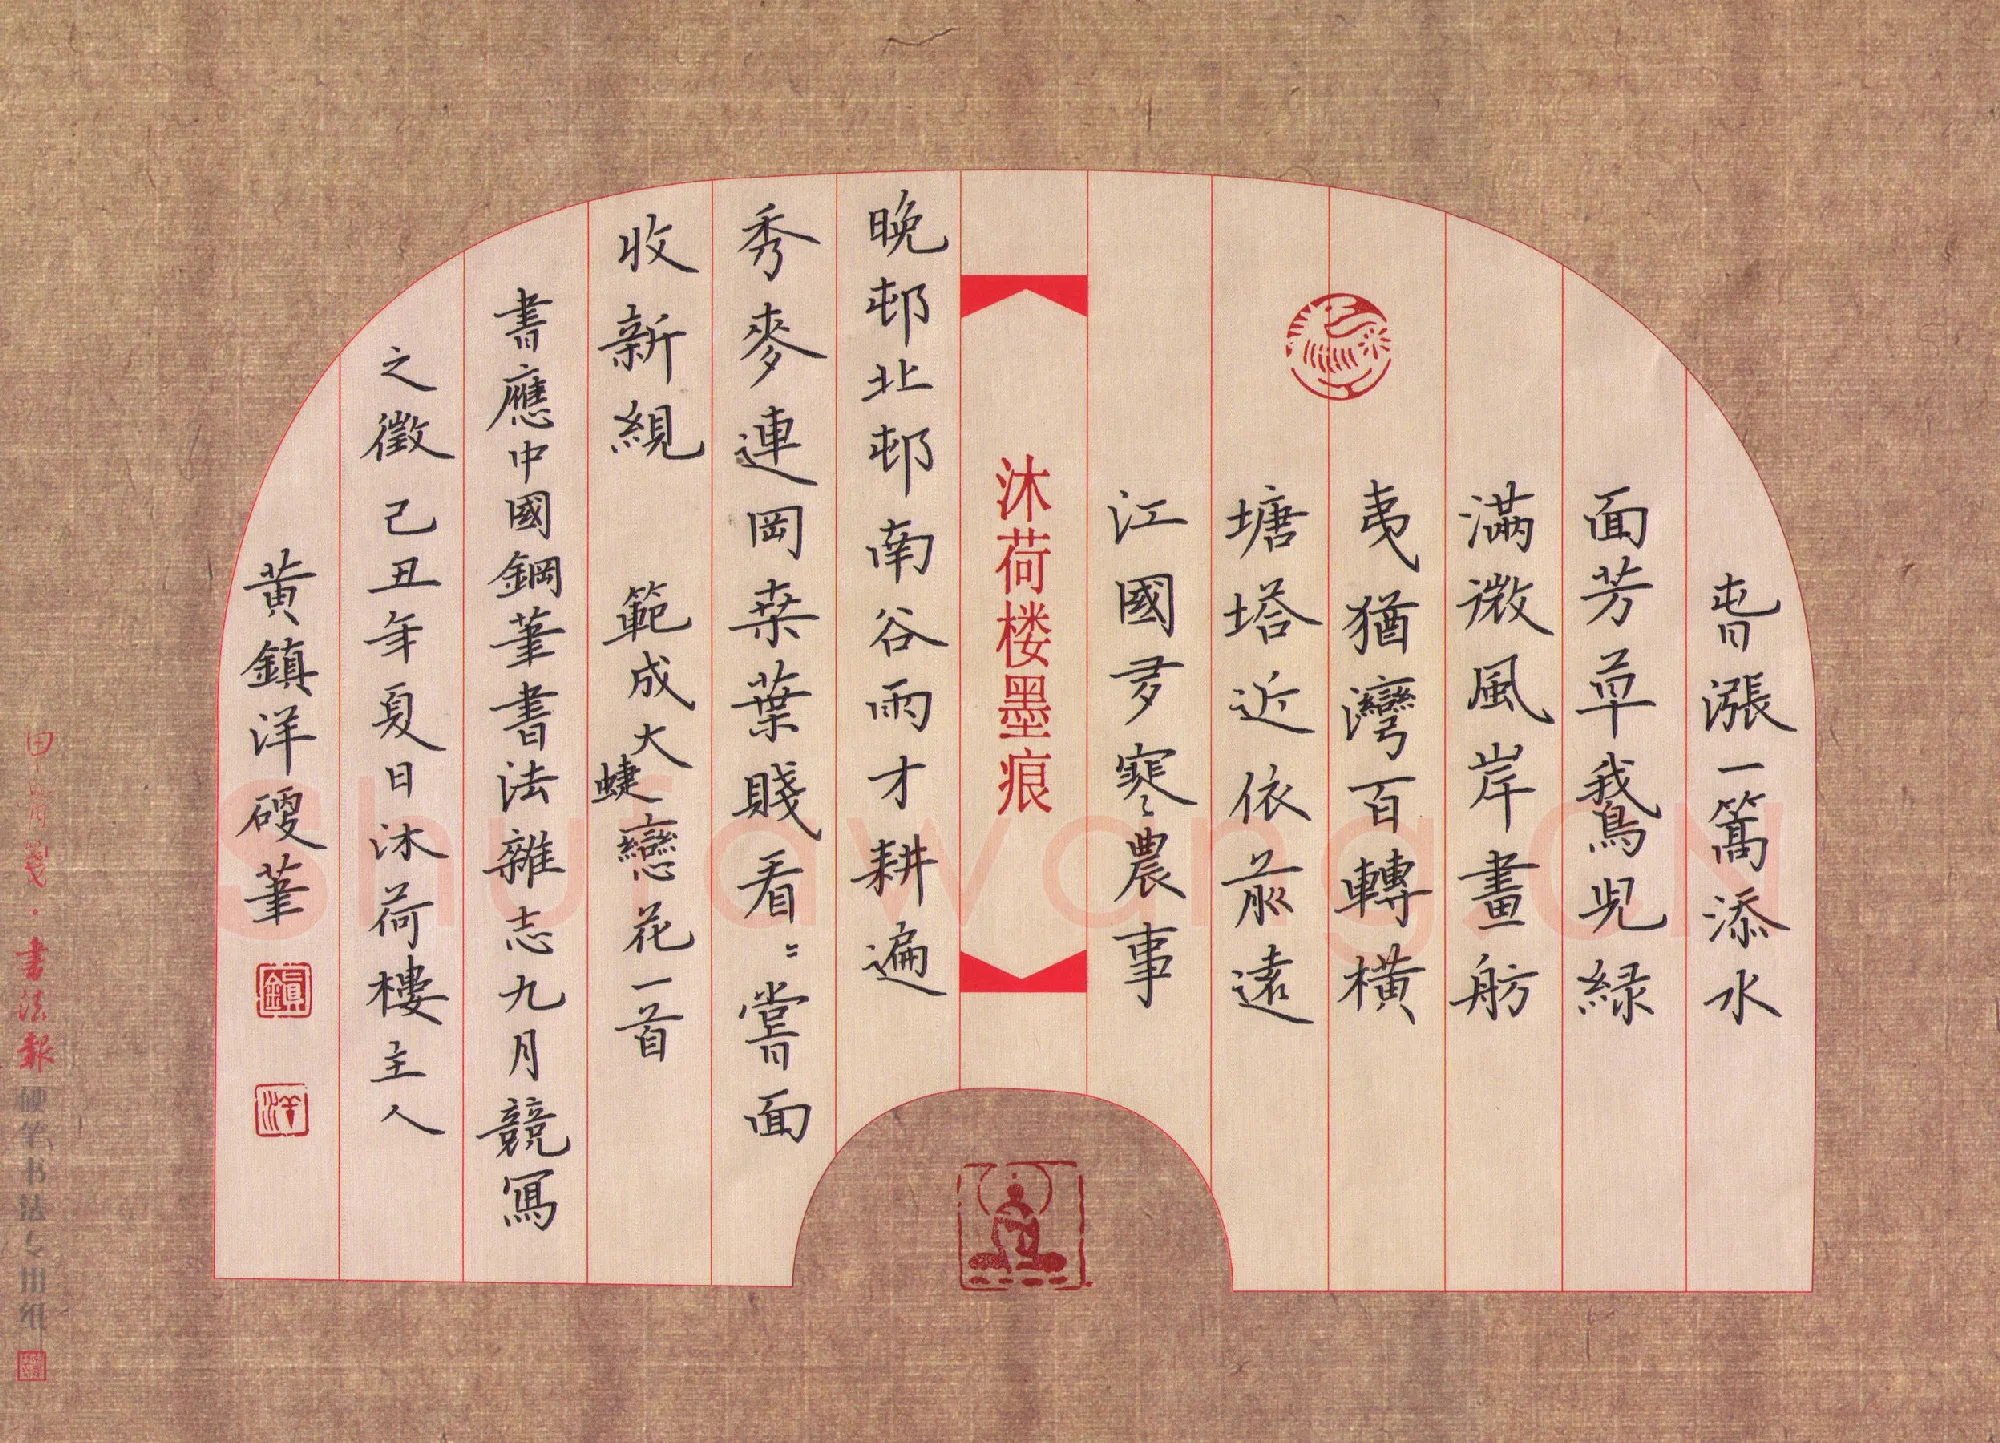 萅漲一篙添水
面芳草鵞兒緑
滿微風岸畫舫
夷猶灣百轉橫
塘塔近依前遠
江國多寒農事
沐荷楼墨痕
晚邨北邨南谷雨才耕遍
秀麥連岡桒葉賤看〻嘗面
收新絸 範成大蜨戀花一首
書應中國鋼筆書法雜志九月競寫
之徵己丑年夏日沐荷樓主人
黃鎮洋硬筆
鎮
洋
書法報
硬笔书法专用纸
Shufawang.CN